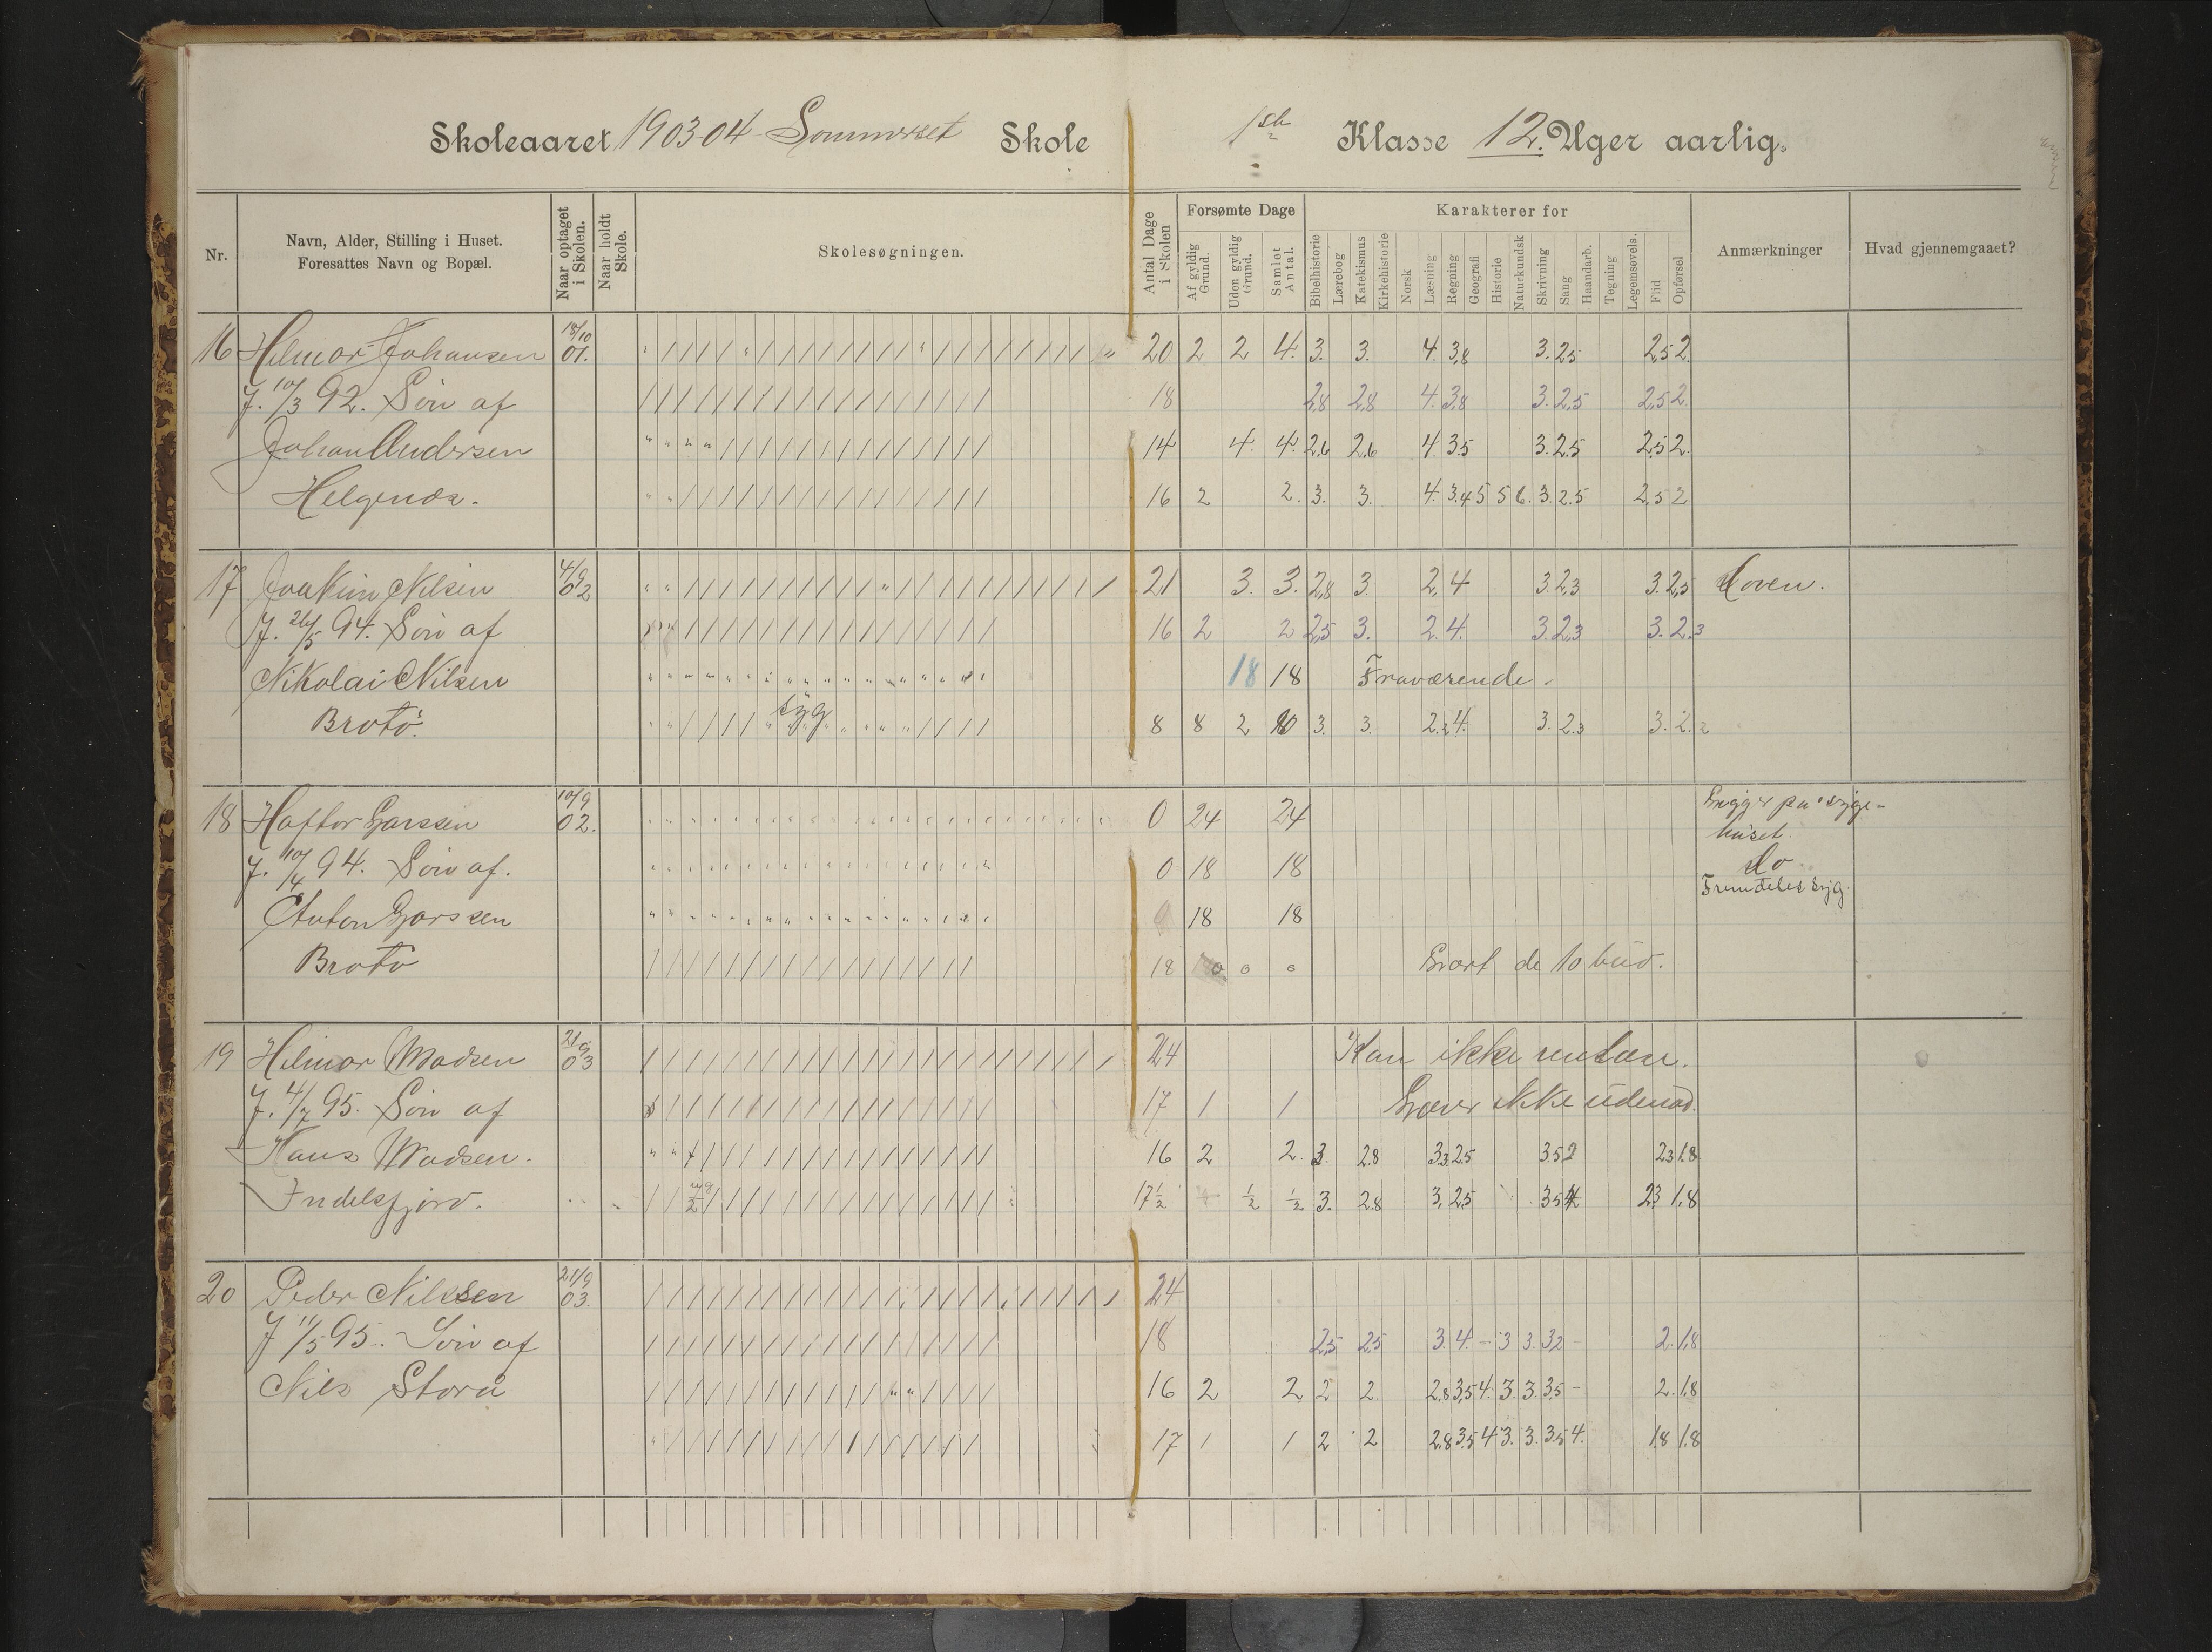 Skoleaaret 1903-04 Sommerset Skole 1ste Klasse 12. Uger aarlig.
Nr. Navn, Alder, Stilling i Huset. Foresattes Navn og Bopæl. Naar optaget i Skolen. Naar holdt Skole. Skolesøgningen. Antal Dage i Skolen Forsømte Dage Af gyldig Grund. Uden gyldig Grund. Samlet Antal. Karakterer for Bibelhistorie Lærebog Katekismus Kirkehistorie Norsk Læsning Regning Geografi Historie Naturkundsk Skrivning Sang Haandarb. Tegning Legemsøvels. Flid Opførsel Anmærkninger Hvad gjennemgaaet?
16 Hilmar Johansen 18/10 01. 20 2 2 4. 3. 3. 4. 3,8 3. 2,5 2,5 2.
F. 10/3 92. Søn af 18 2,8 2,8 4. 3,8 3. 2,5 2,5 2.
Johan Andersen 14 4. 4. 2,6 2,6 4. 3,5 3. 2,5 2,5 2.
Helgenes. 16 2 2. 3. 3. 4. 3,4 5 5 6. 3. 2,5 2,5 2
17 Joakim Nilsen 4/9 02 21 3. 3. 2,8 3. 2, 4 3. 2,3 3. 2,5 Doven.
F. 26/5 94. Søn af 16 2 2 2,5 3. 2. 4. 3. 2,3 3. 2,3
Nikolai Nilsen 18 18 Fraværende.
Brotø. syg 8 8 2 10 3. 3. 2,2 4. 3. 2,3 3. 2,2
18 Haftor Larssen 10/9 02. 0 24 24 Ligger paa syge-
huset.
F. 10/4 94. Søn af. 0 18 18 do
Fremdeles syg.
Anton Larssen 18 18
Brotø 18 0 0 0 Lært de 10 bud.
19 Hilmar Madsen 21/9 03 24 Kan ikke
F. 4/7 95. Søn af 17 1 1 Læser ikke udenad.
Hans Madsen. 16 2 2. 3. 2,8 3,3 2,5 3,5 2 2,3 1,8
Indelsfjord. 17½ ½ ½ 3. 2,8 3, 2,5 3,5 2,3 1,8
20 Peder Nilssen 21/9 03. 24
F 11/5 95. Søn af 18 2,5 2,5 3. 4. - 3 3. 3,2 - 2. 1,8
Nils Storå 16 2 2 2 2. 2,8 3,5 4. 3. 3. 3,5 - 2. 1,8
17 1 1 2 2 2,8 3,5 4 3. 3. 3,5 4. 1,8 1,8